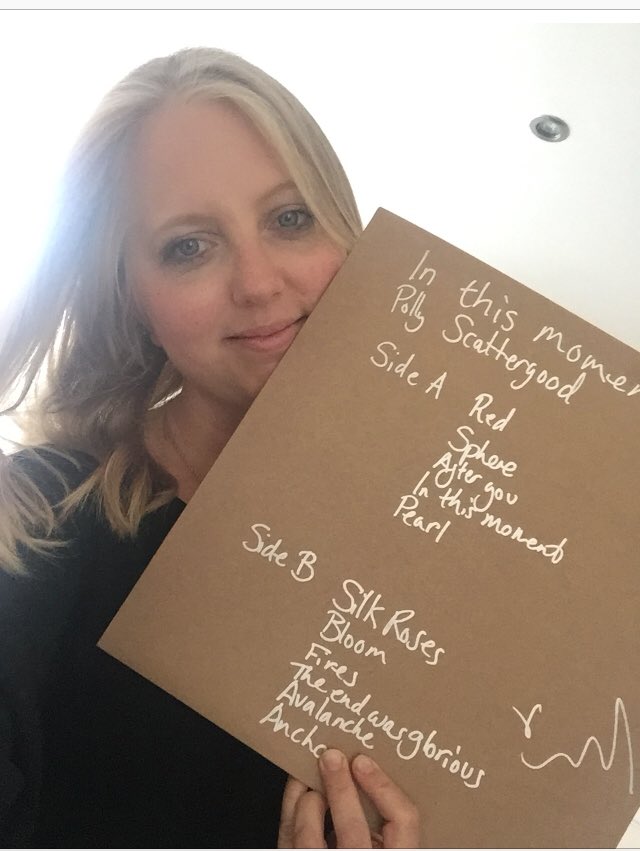 In this momen
Polly Scattergood
Side A
Red
Sphere
After you
In this moment
Pearl
Side B
Silk Roses
Bloom
Fires
The end was glorious
Avalanche
Ancho